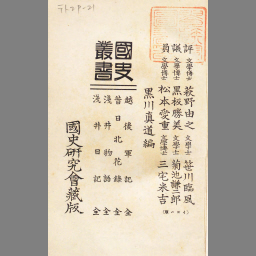 評議員
文學博士 萩野由之
文學士 笹川臨風
文學博士 黑板勝美
文學士 菊池謙二郎
文學博士 松本愛重
文學博士 三宅米吉
(イロハ順)
黑川眞道編
國史叢書
越後軍記 全
昔日北花錄 全
淺井物語 全
淺井日記 全
國史硏究會藏版